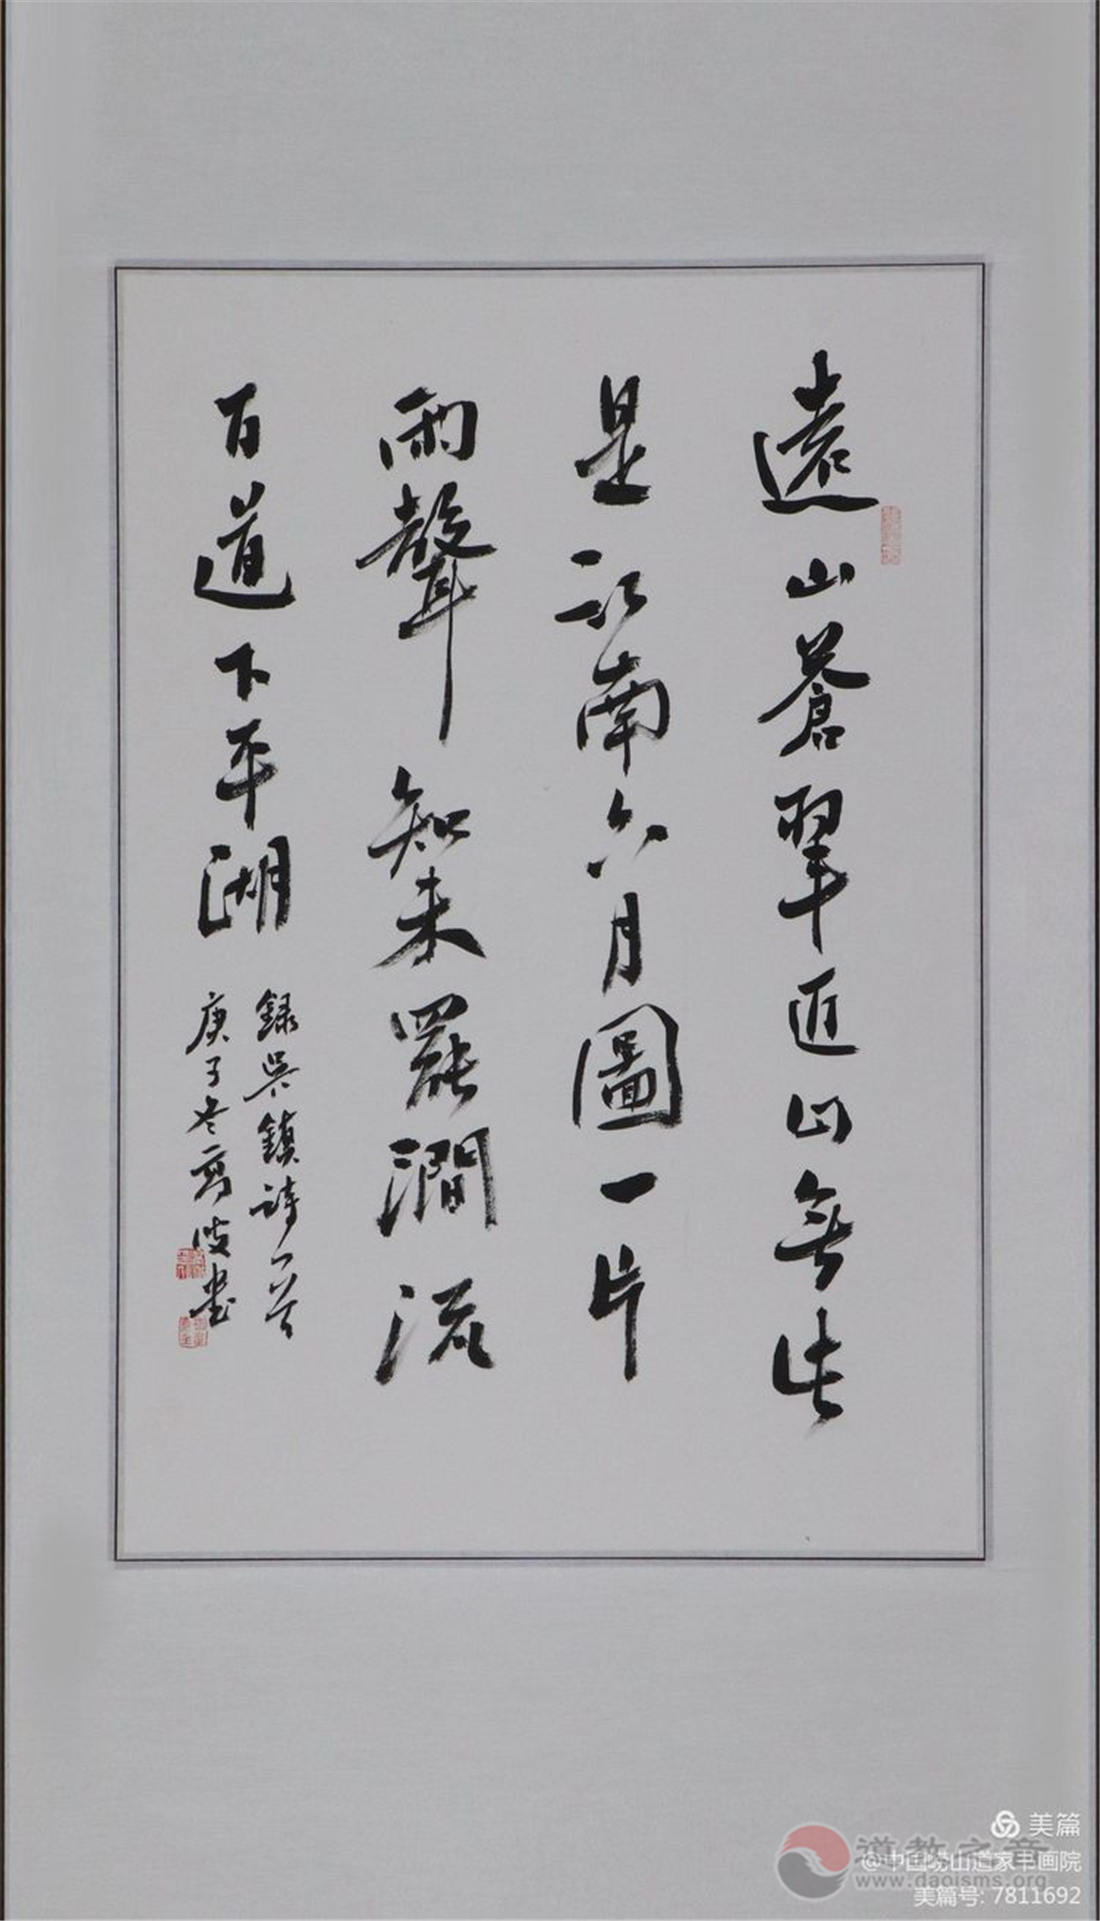 遠山蒼翠近山無此
是江南六月圖一片
雨聲知未罷澗流
百道下平湖
録吴鎮詩一首
庚子冬 书
美篇
道教之音
@中国崂山道家书画院
www.daoisms.org
美篇号: 7811692